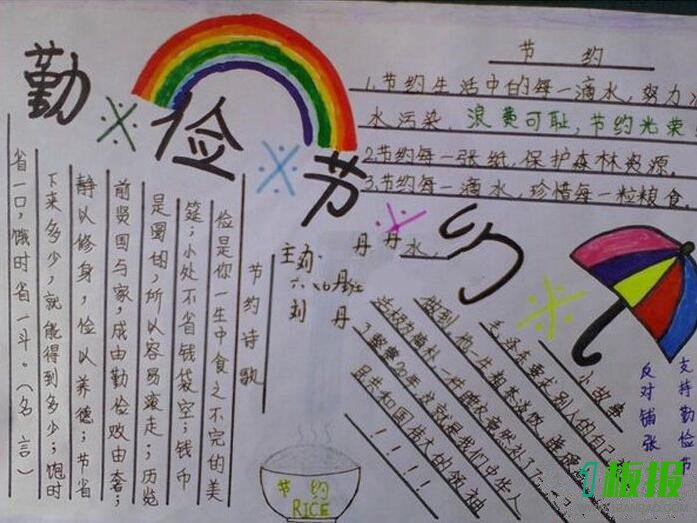 勤俭节约
节约
1.节约生活中的每一滴水，努力
水污染，浪费可耻，节约光荣
2节约每一张纸，保护森林资源。
3.节约每一滴水，珍惜每一粒粮食。
主办：丹丹
六（七）
刘丹
水，
节约诗歌
俭是你一生中食之不完的美
筵；小处不省钱袋空；钱币
是圆
所以容易滚走；历览
前贤国与家，成由勤俭败由奢；
静以修身，俭以养德；节省
下来多少，就能得到多少；饱时
省一口，饿时省一斗。（名言）
小故事
毛泽东要求别人的自己
做到，他一生粗茶淡饭，睡硬
这极为简朴一件睡衣竟然补了
整整20年，这就是我们中华人
民共和国伟大的领袖
！！！！
支持勤俭节
反对铺张
节约
RICE
1板报